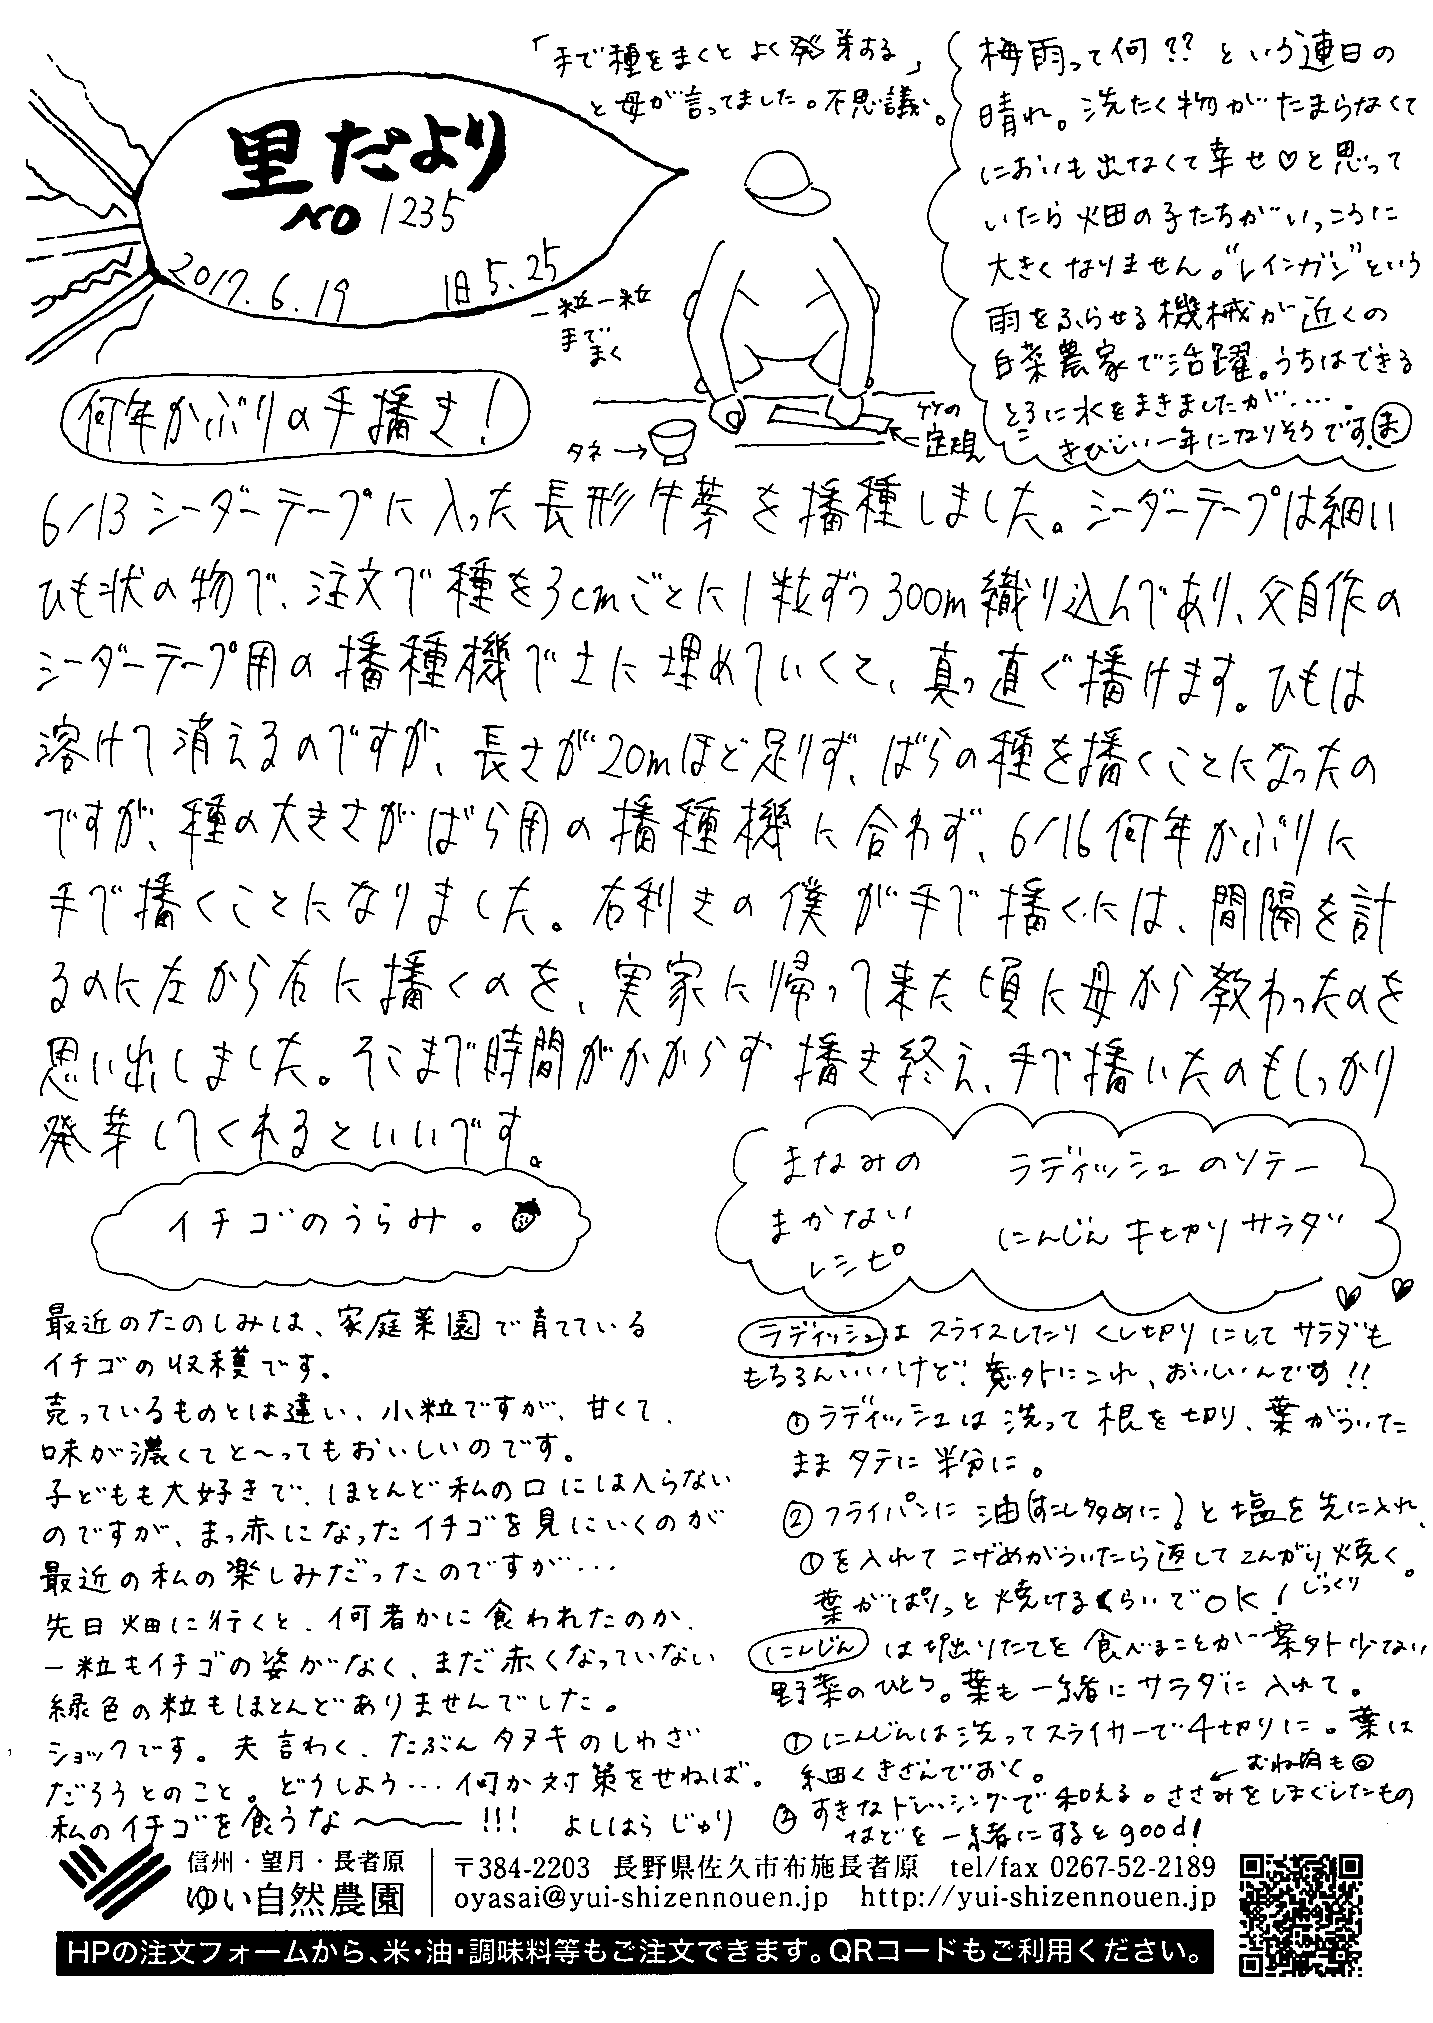 里だより
NO 1235
2017.6.19 旧5.25
「手で種をまくと よく発芽する」
と母が言ってました。不思議。
一粒一粒
手で
まく
タネ→
竹の
定規
梅雨って何?? という連日の
晴れ。洗たく物がたまらなくて
においも出なくて幸せ♡と思って
いたら畑の子たちがいっこうに
大きくなりません。"レインガン"という
雨をふらせる機械が近くの
白菜農家で活躍。うちはできる
ところに水をまきましたが....。
きびしい一年になりそうです。ま
何年かぶりの手播き!
6/13 シーダーテープに入った長形牛蒡を播種しました。シーダーテープは細い
ひも状の物で、注文で種を3cmごとに1粒ずつ300m織り込んであり、父自作の
シーダーテープ用の播種機で土に埋めていくと、真っ直ぐ播けます。ひもは
溶けて消えるのですが、長さが20mほど足りず、ばらの種を播くことになったの
ですが、種の大きさがばら用の播種機に合わず、6/16 何年かぶりに
手で播くことになりました。右利きの僕が手で播くには、間隔を計
るのに左から右に播くのを、実家に帰って来た頃に母から教わったのを
思い出しました。そこまで時間がかからず播き終え、手で播いたのもしっかり
発芽してくれるといいです。
イチゴのうらみ。
最近のたのしみは、家庭菜園で育てている
イチゴの収穫です。
売っているものとは違い、小粒ですが、甘くて、
味が濃くてと〜ってもおいしいのです。
子どもも大好きで、ほとんど私の口には入らない
のですが、まっ赤になったイチゴを見にいくのが
最近の私の楽しみだったのですが…
先日畑に行くと、何者かに食われたのか、
一粒もイチゴの姿がなく、まだ赤くなっていない
緑色の粒もほとんどありませんでした。
ショックです。夫言わく、たぶんタヌキのしわざ
だろうとのこと。どうしよう…何か対策をせねば。
私のイチゴを食うな〜〜!!! よしはらじゅり
まなみの
まかない
レシピ
ラディッシュのソテー
にんじん千切りサラダ
ラディッシュは スライスしたりくし切りにしてサラダも
もちろんいいけど、意外にこれ、おいしいんです!!
①ラディッシュは洗って根を切り、葉がついた
ままタテに半分に。
②フライパンに油(すこし多めに)と塩を先に入れ、
①を入れてこげめがついたら返してこんがり焼く。
じっくり
葉がぱりっと焼けるくらいでOK!
にんじん は掘出りたてを食べることが案外少ない
野菜のひとつ。葉も一緒にサラダに入れて。
①にんじんは洗ってスライサーで千切りに。葉は
細くきざんでおく。
むね肉も◎
②すきなドレッシングで和える。ささみをしまぐしたもの
などを一緒にするとgood!
信州・望月・長者原
ゆい自然農園
〒384-2203 長野県佐久市布施長者原 tel/fax 0267-52-2189
oyasai@yui-shizennouen.jp http://yui-shizennouen.jp
HPの注文フォームから、米・油・調味料等もご注文できます。QRコードもご利用ください。